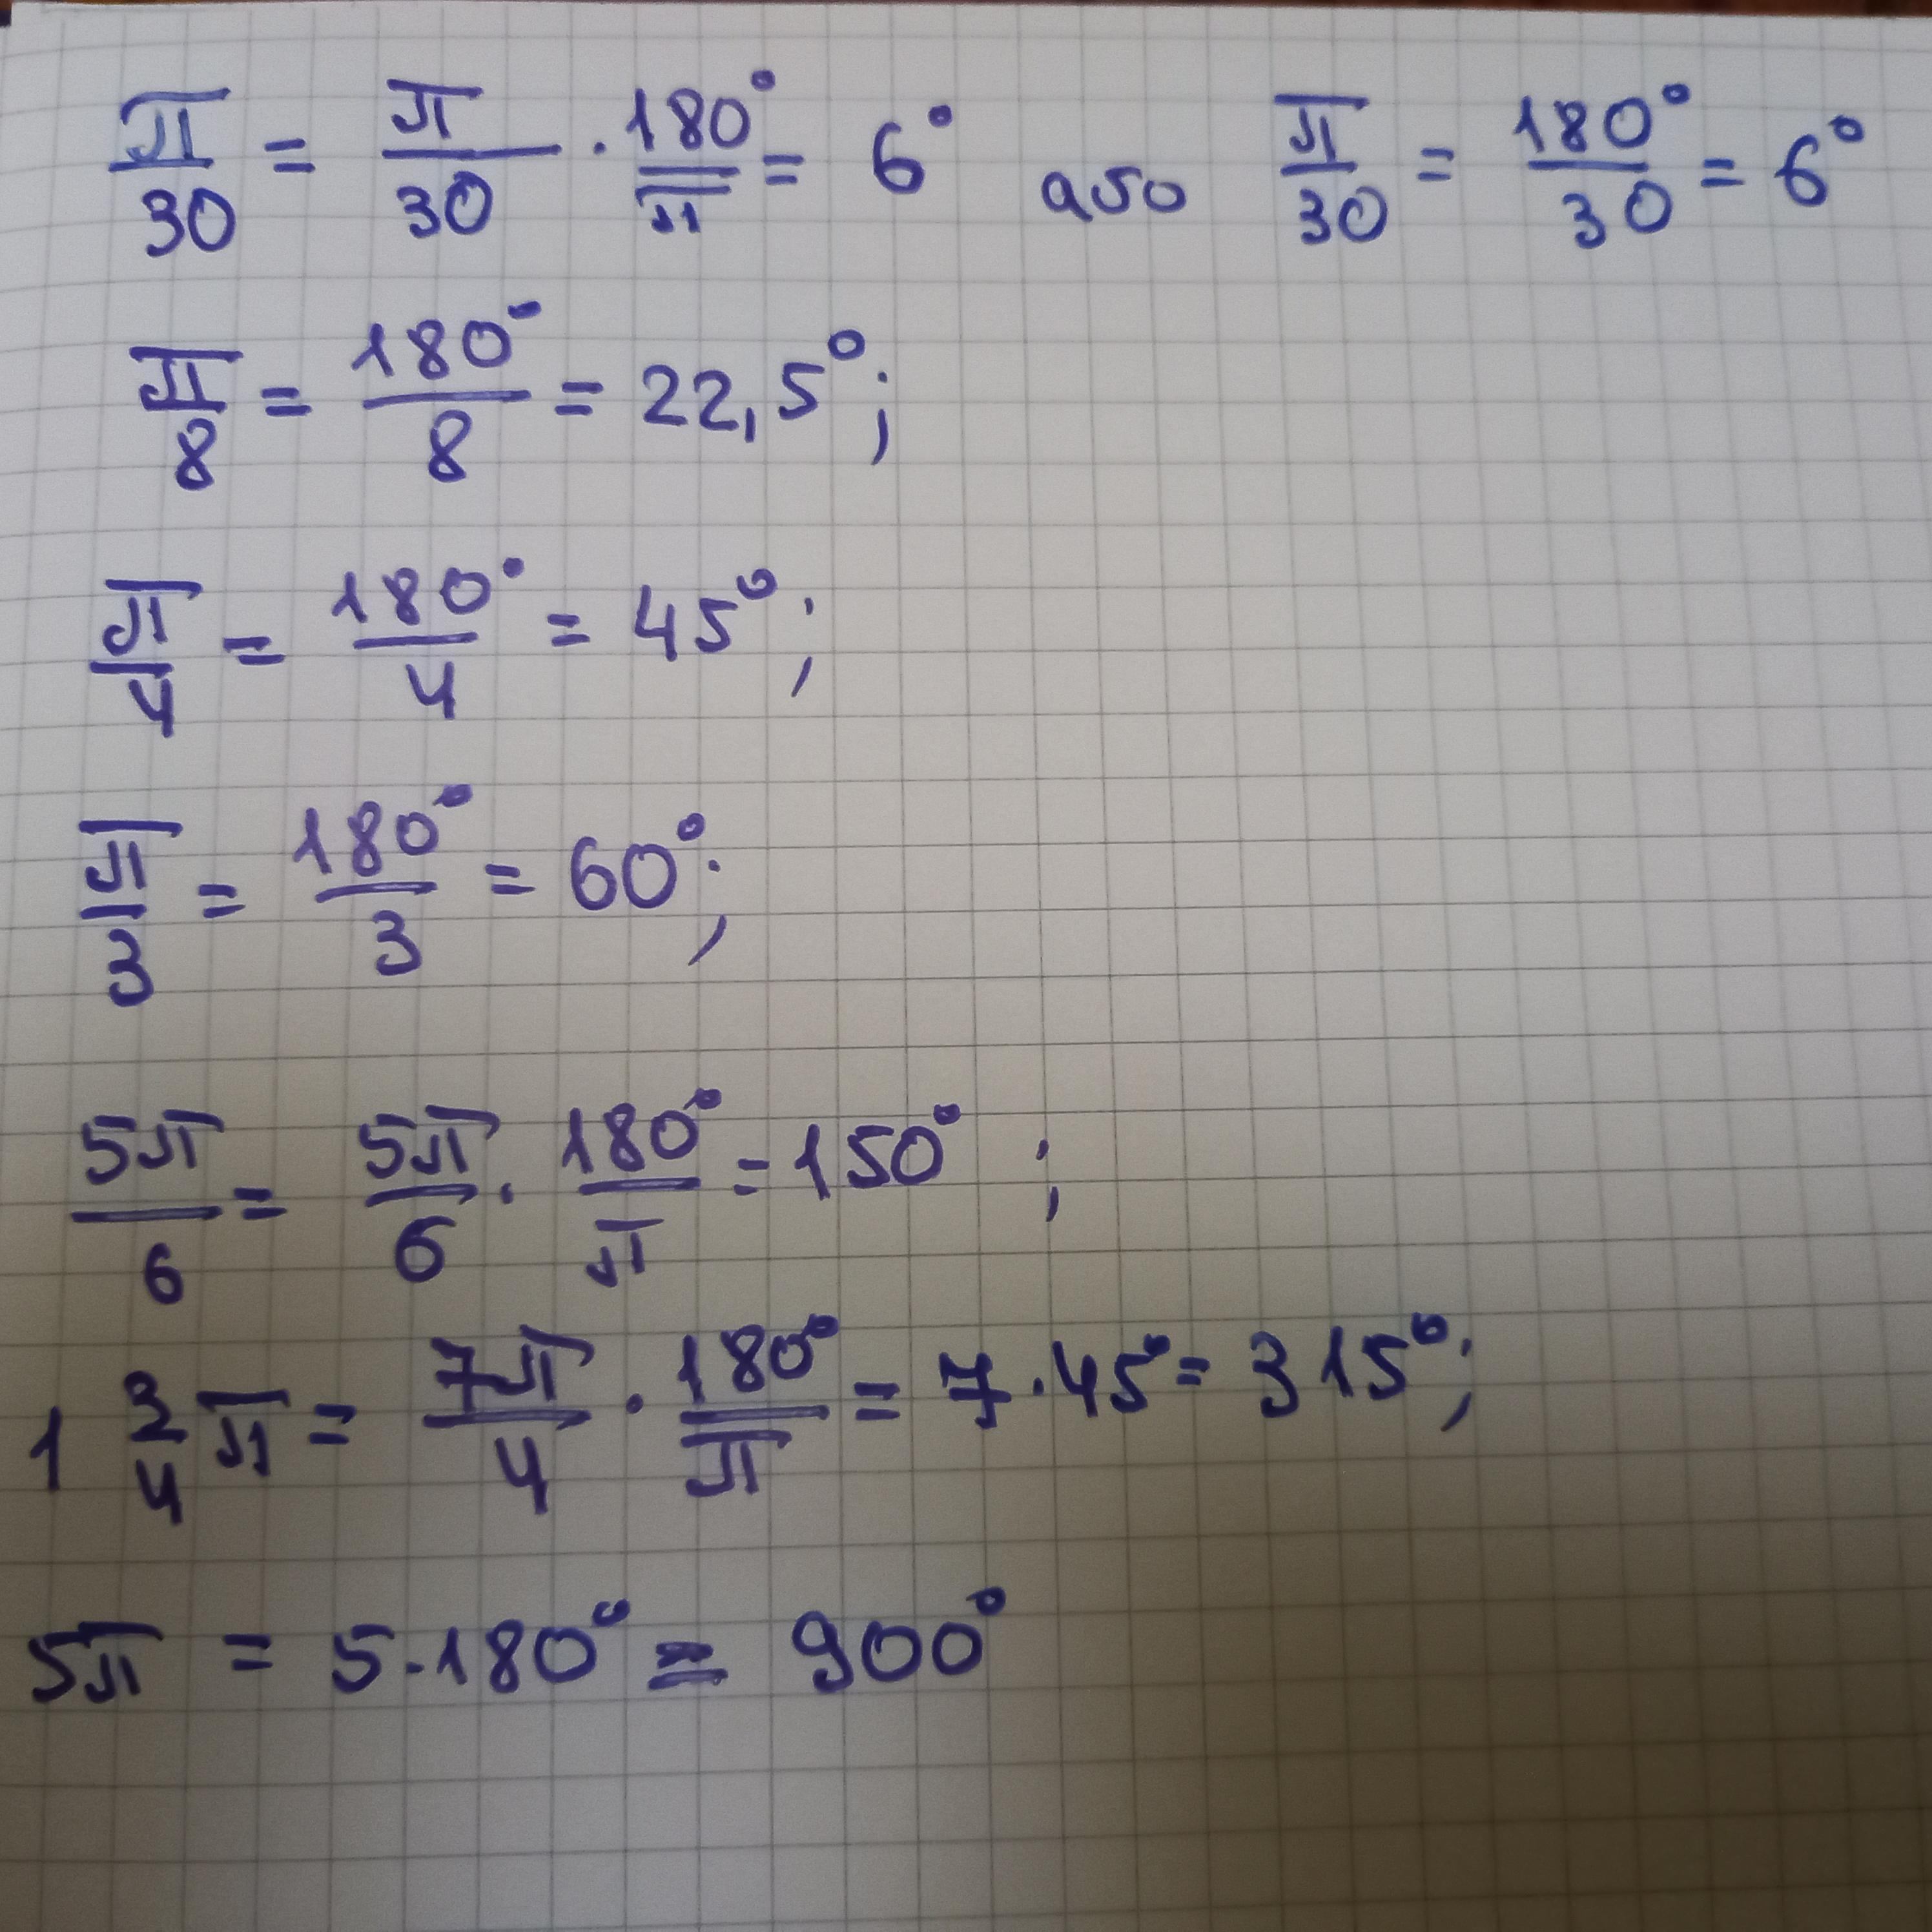 π/30 = π/30 · 180°/π = 6° або π/30 = 180°/30 = 6°
π/8 = 180°/8 = 22,5°;
π/4 = 180°/4 = 45°;
π/3 = 180°/3 = 60°;
5π/6 = 5π/6 · 180°/π = 150°;
1 3/4 π = 7π/4 · 180°/π = 7 · 45° = 315°;
5π = 5 · 180° = 900°